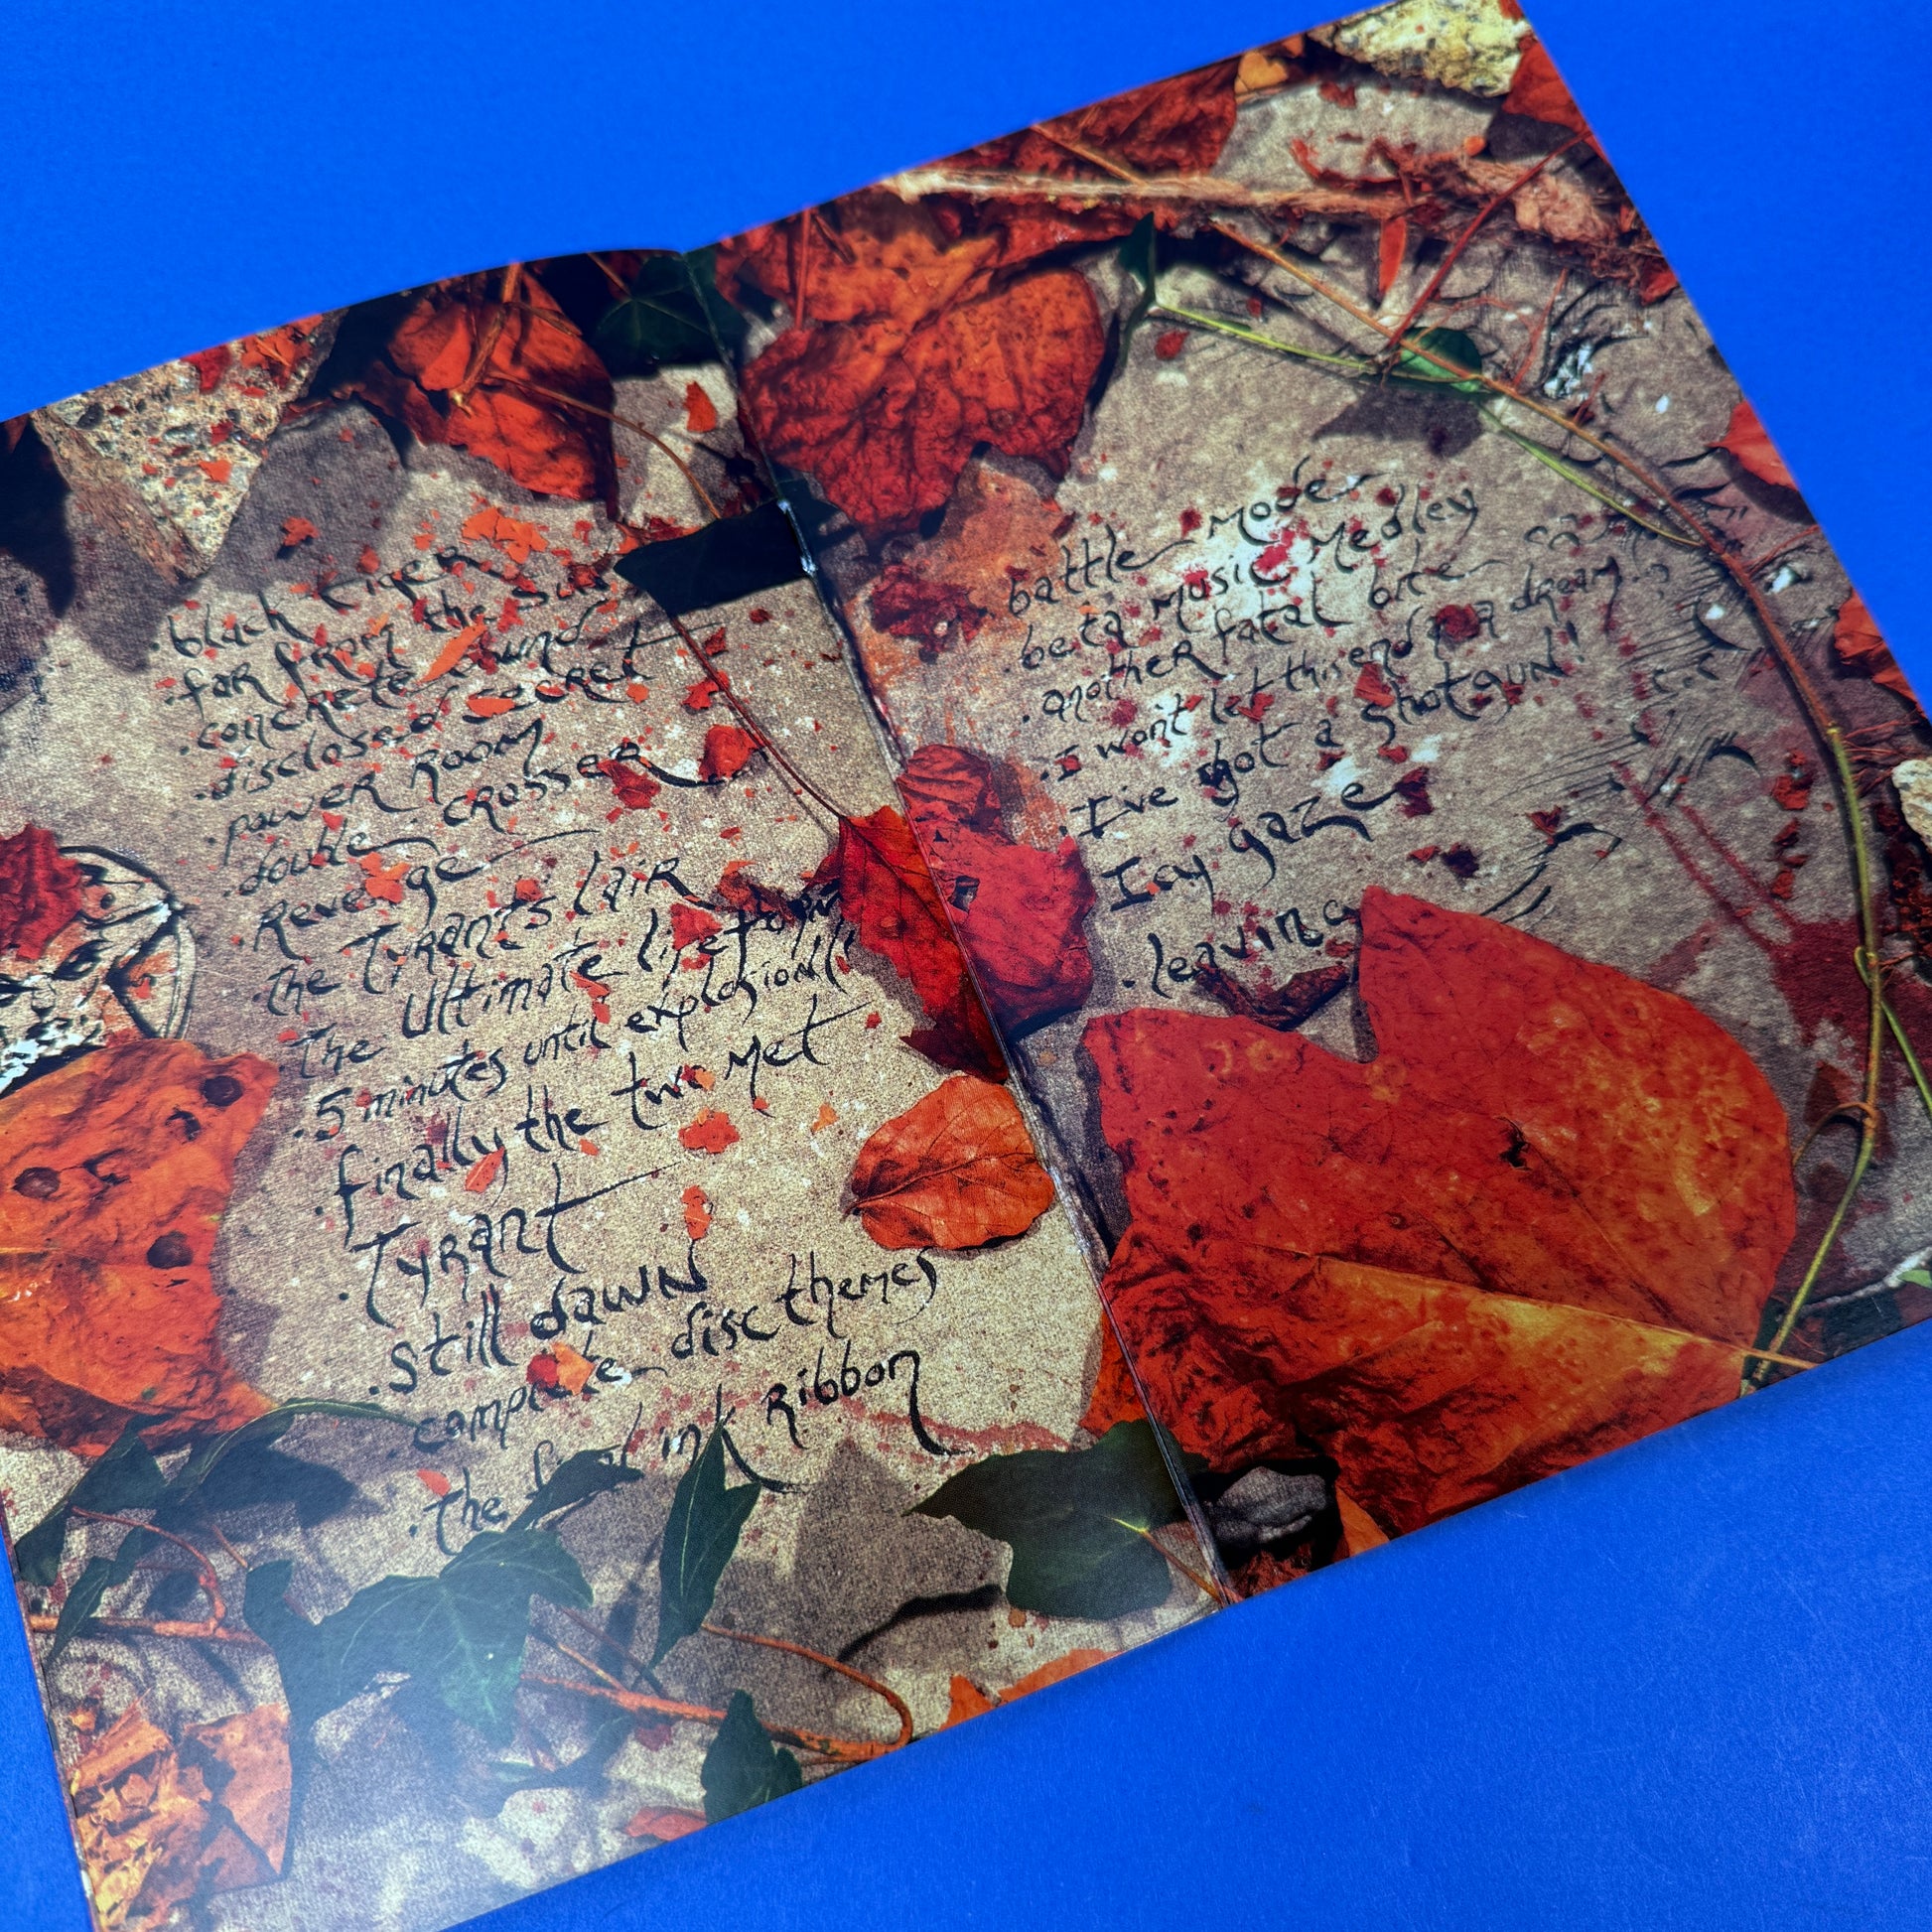 .black tiger
.far from the sun
.concrete bound
.disclosed secret
.power room
.double crosser
.Revenge
.the Tyrants lair
.The Ultimate lifeform
.5 minutes until explosion!!
.finally the two met
.Tyrant
.still dawn
.complete disc themes
.the final ink ribbon
.battle mode
.beta music Medley
.another fatal bite
.I won't let this end as a dream
.I've got a shotgun!
Icy gaze
.leaving